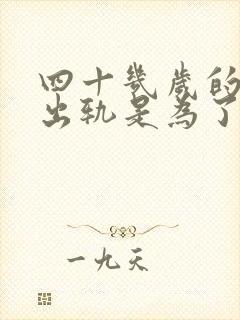 四十几歲的
出轨是為了
一九天